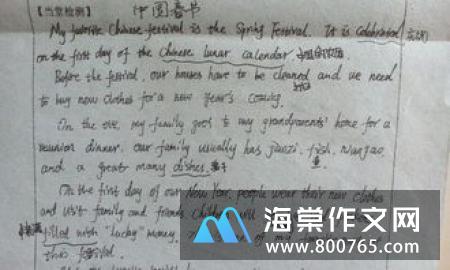 【当堂检测】 中国春节
My favorite Chinese festival is the Spring Festival. It is celebrated
on the first day of the Chinese lunar calendar
Before the festival, our houses have to be cleaned and we need
to buy new clothes for a new year's coming.
On the eve, my family goes to my grandparents' home for a
reunion dinner. our family usually has jiaozi, fish, niangao,
and a great many dishes.
On the first day of our New Year, people wear their new clothes
and visit family and friends. Children will
filled with "lucky" money. of my
this festival.
海棠作文网
www.800765.com